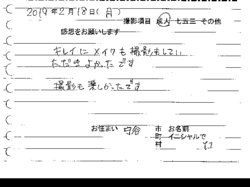 2019年2月18日(月)
撮影項目 成人 七五三 その他
感想をお願いします
キレイにメイクも撮影もしてい
ただきよかったです
撮影も楽しかったです
お住まい 市 お名前
町 イニシャルで
村